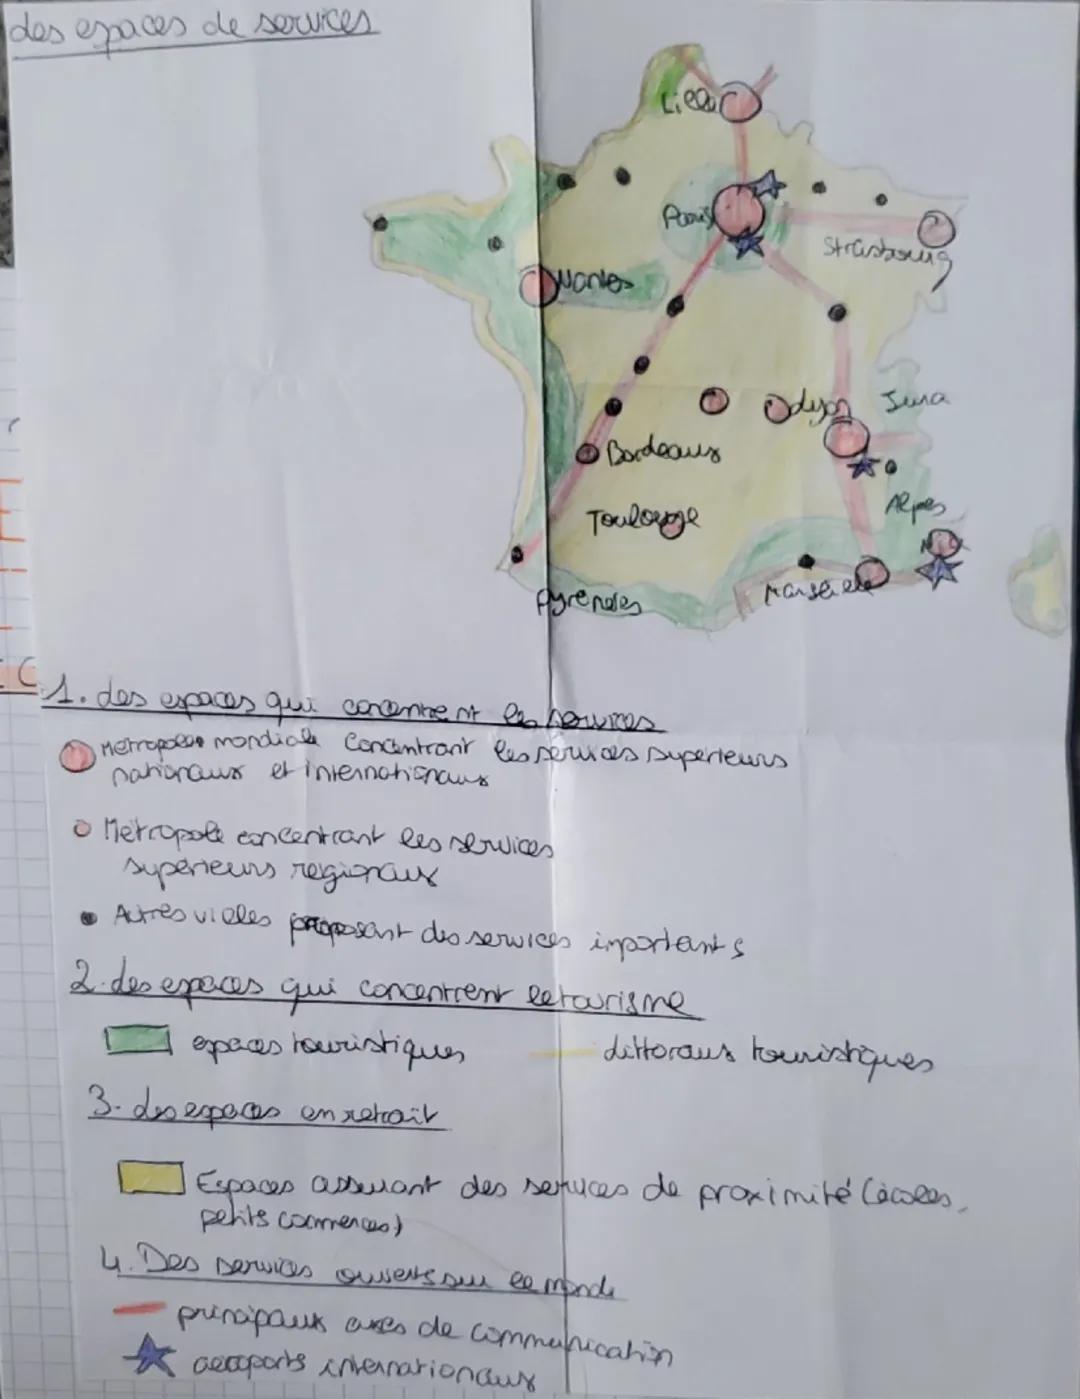 des espaces de services
Lille
Paris
Strasbourg
Nantes
Lyon
Jura
Bordeaux
Alpes
Toulouse
Nice
Marseille
Pyrénées
1. des espaces qui concentrent les services
Métropole mondiale concentrant les services supérieurs
nationaux et internationaux
Métropole concentrant les services
supérieurs régionaux
Autres villes proposant des services importants
2. des espaces qui concentrent le tourisme
espaces touristiques
littoraux touristiques
3. des espaces en retrait
Espaces assurant des services de proximité (écoles,
petits commerces)
4. Des services ouverts sur le monde
principaux axes de communication
aeoports internationaux